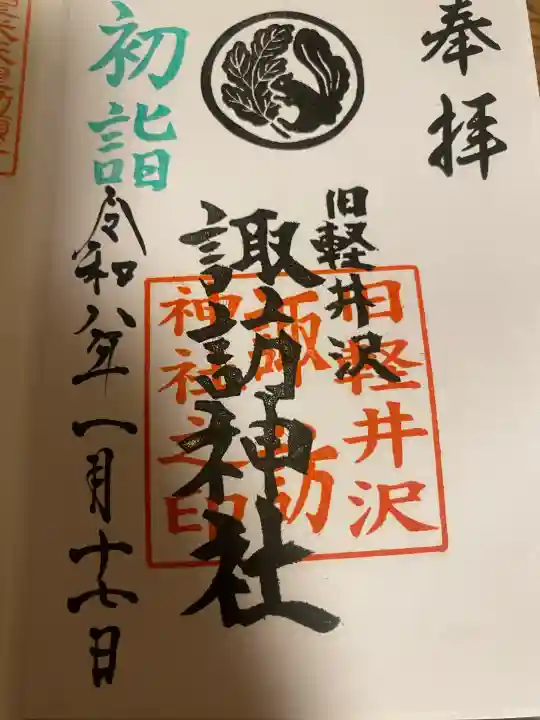 奉拝
旧軽井沢
諏訪神社
旧軽井沢
諏訪
神社之印
初詣
令和八年一月十七日